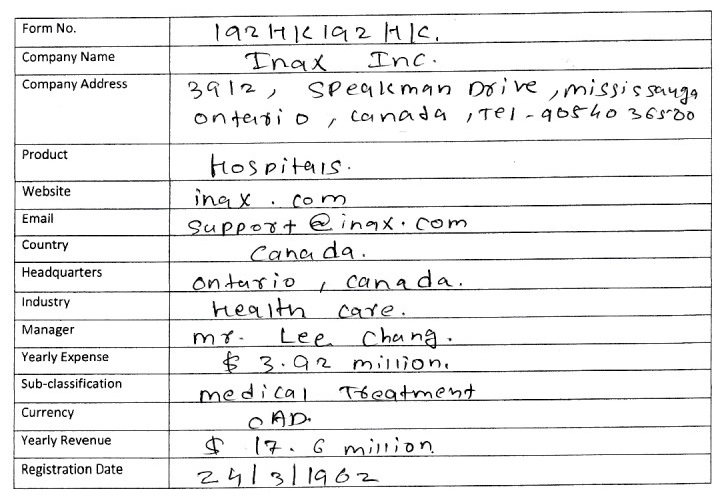 Form No. 192HK192HK.
Company Name Inax Inc.
Company Address 3912, Speakman Drive, mississauga
ontario, canada, Tel-9054036500
Product Hospitals.
Website inax.com
Email support@inax.com
Country Canada.
Headquarters ontario, canada.
Industry Health care.
Manager mr. Lee Chang.
Yearly Expense $ 3.92 million.
Sub-classification medical Treatment
Currency CAD.
Yearly Revenue $ 17.6 million
Registration Date 24/3/1962